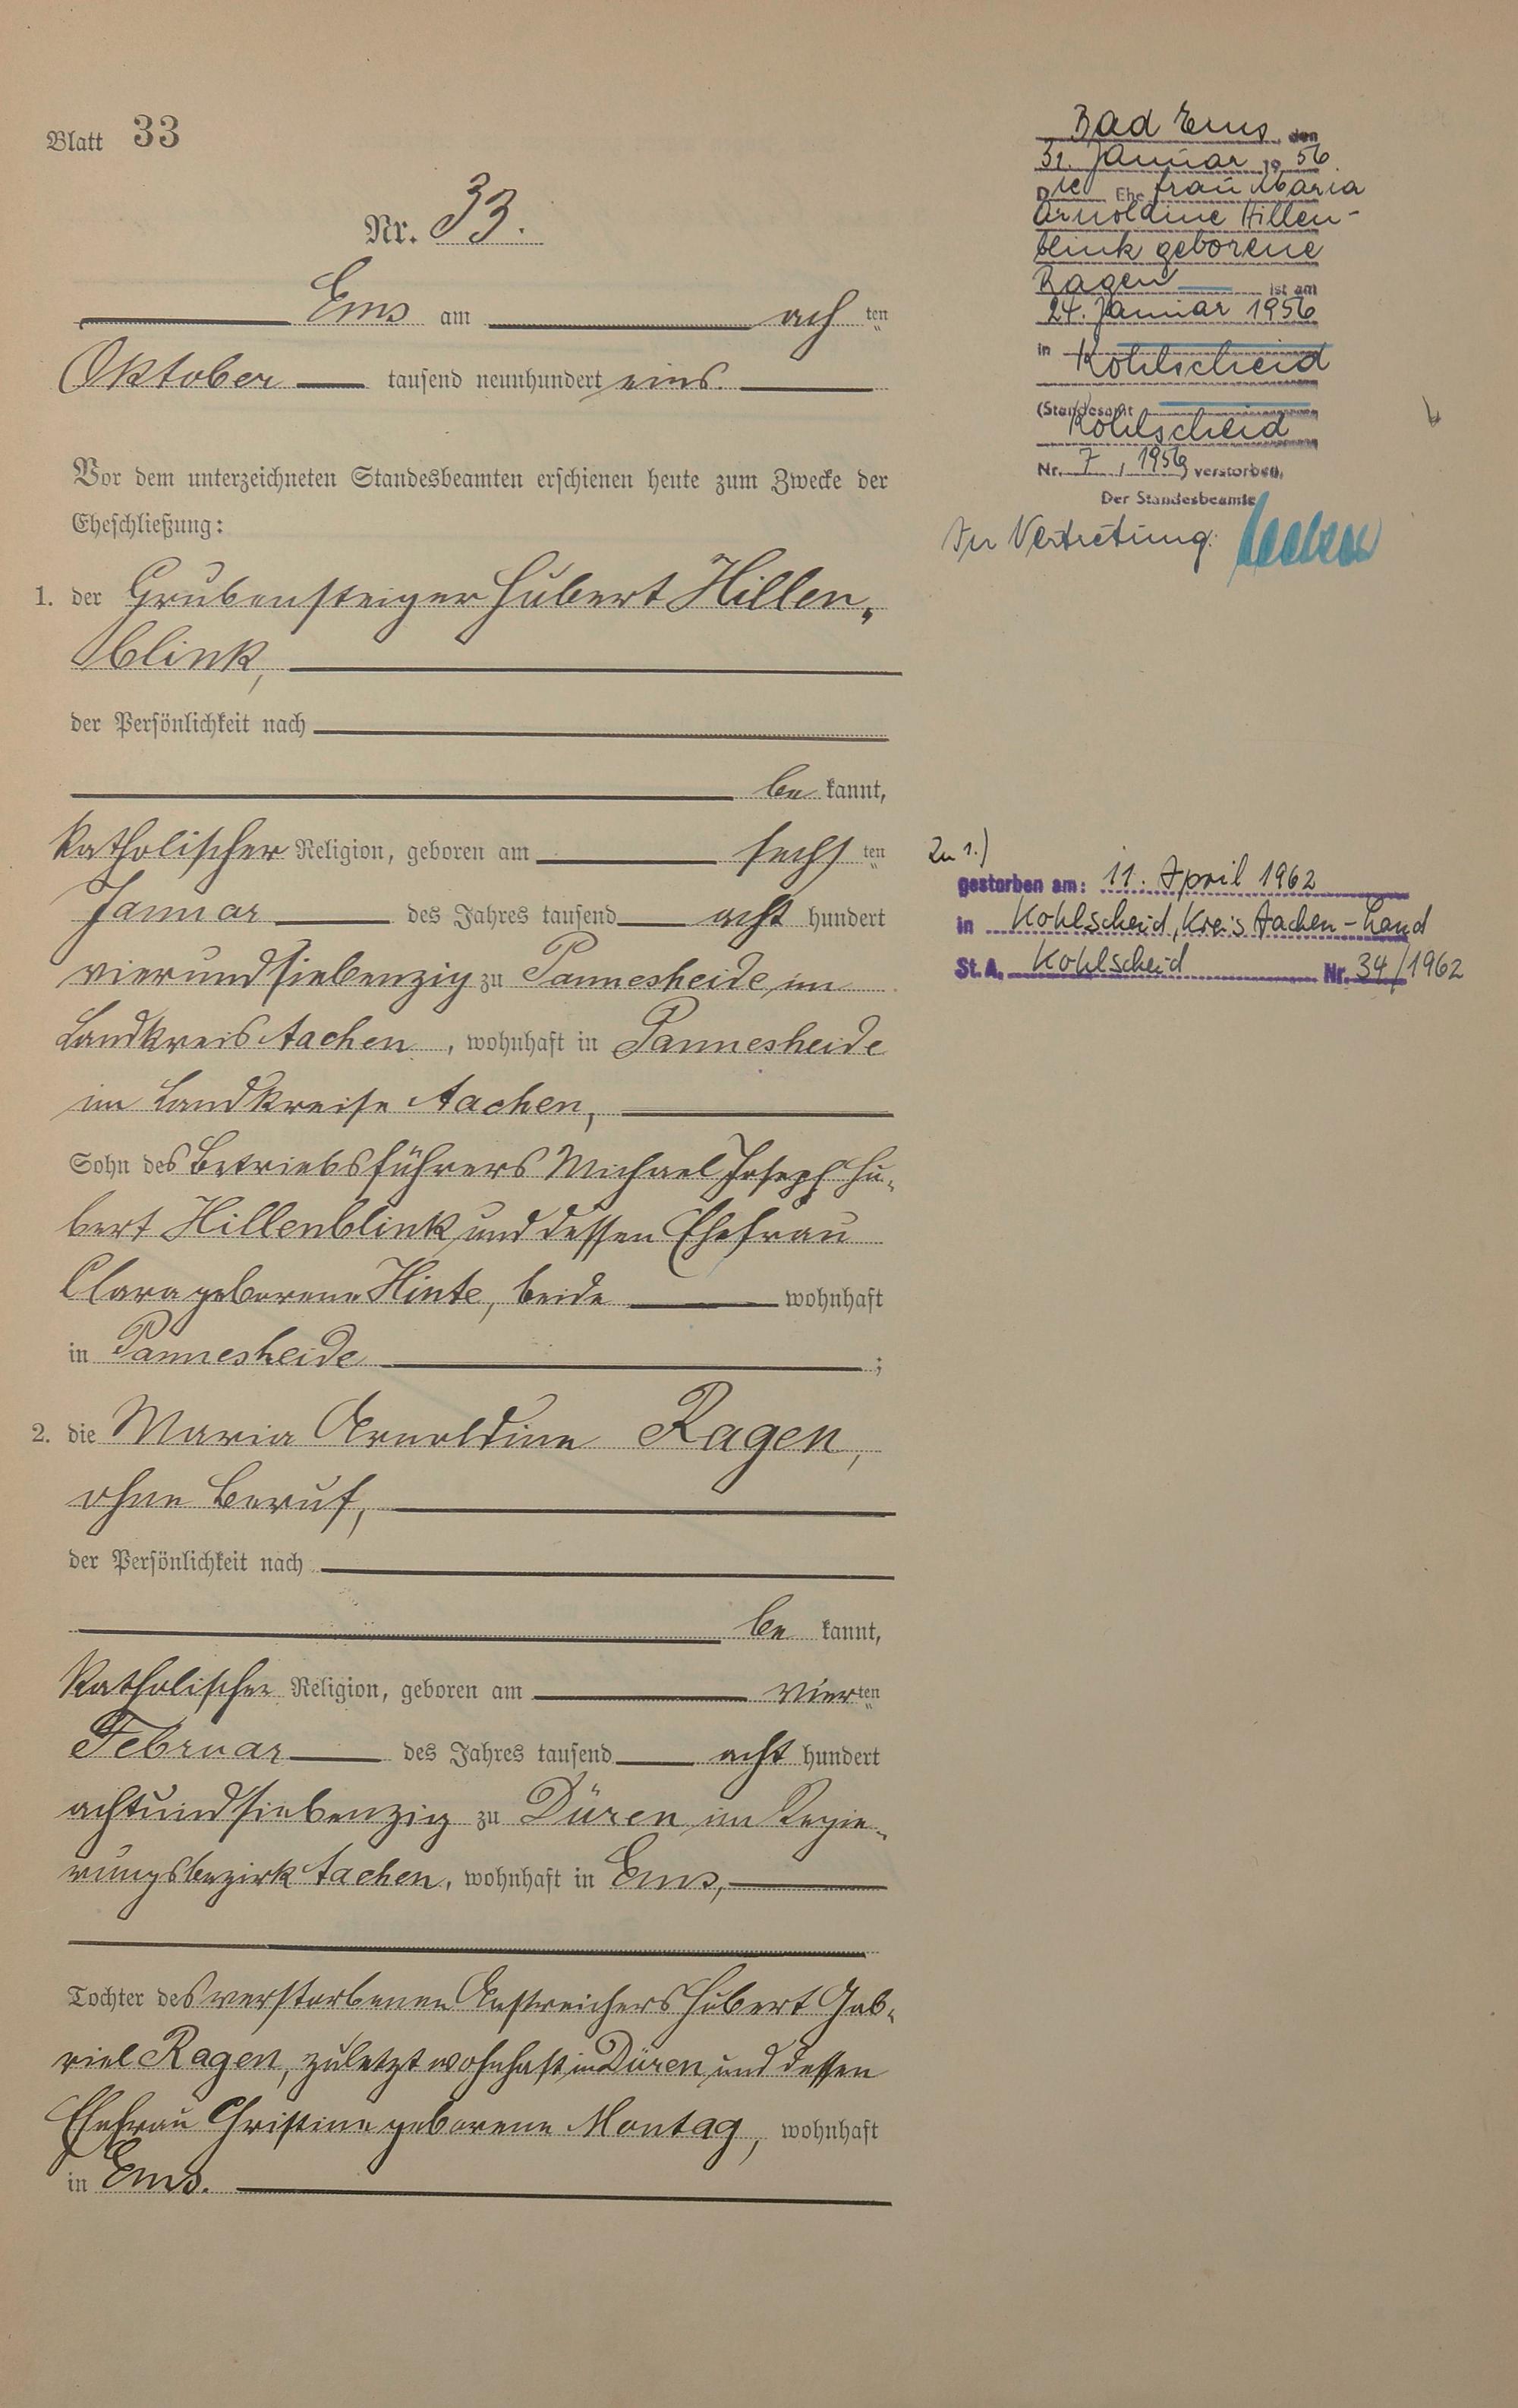 Blatt 33
Nr. 33.
Ems am ach ten
Oktober tausend neunhundert eins.
Vor dem unterzeichneten Standesbeamten erschienen heute zum Zwecke der
Eheschließung:
1. der Grubensteiger Hubert Hillen-
blink,
der Persönlichkeit nach
be kannt,
katholischer Religion, geboren am sechs ten
Januar des Jahres tausend acht hundert
vierundsiebenzig zu Pannesheide im
Landkreis Aachen, wohnhaft in Pannesheide
im Landkreise Aachen,
Sohn des Betriebsführers Michael Joseph Hu-
bert Hillenblink und dessen Ehefrau
Clara geborene Hinte, beide wohnhaft
in Pannesheide ;
2. die Maria Arnoldine Ragen,
ohne Beruf,
der Persönlichkeit nach
be kannt,
katholischer Religion, geboren am vier ten
Februar des Jahres tausend acht hundert
achtundsiebenzig zu Düren im Regie-
rungsbezirk Aachen, wohnhaft in Ems,
Tochter des verstorbenen Anstreichers Hubert Gab-
riel Ragen, zuletzt wohnhaft in Düren und dessen
Ehefrau Christine geborene Montag, wohnhaft
in Ems.
Bad Ems, den
31. Januar 19 56
Die Ehefrau Maria
Arnoldine Hillen-
blink geborene
Ragen ist am
24. Januar 1956
in Kohlscheid
(Standesamt
Kohlscheid
Nr. 7, 1956) verstorben.
Der Standesbeamte
In Vertretung:
Zu 1.)
gestorben am: 11. April 1962
in Kohlscheid, Kreis Aachen-Land
St. A. Kohlscheid Nr. 34/1962